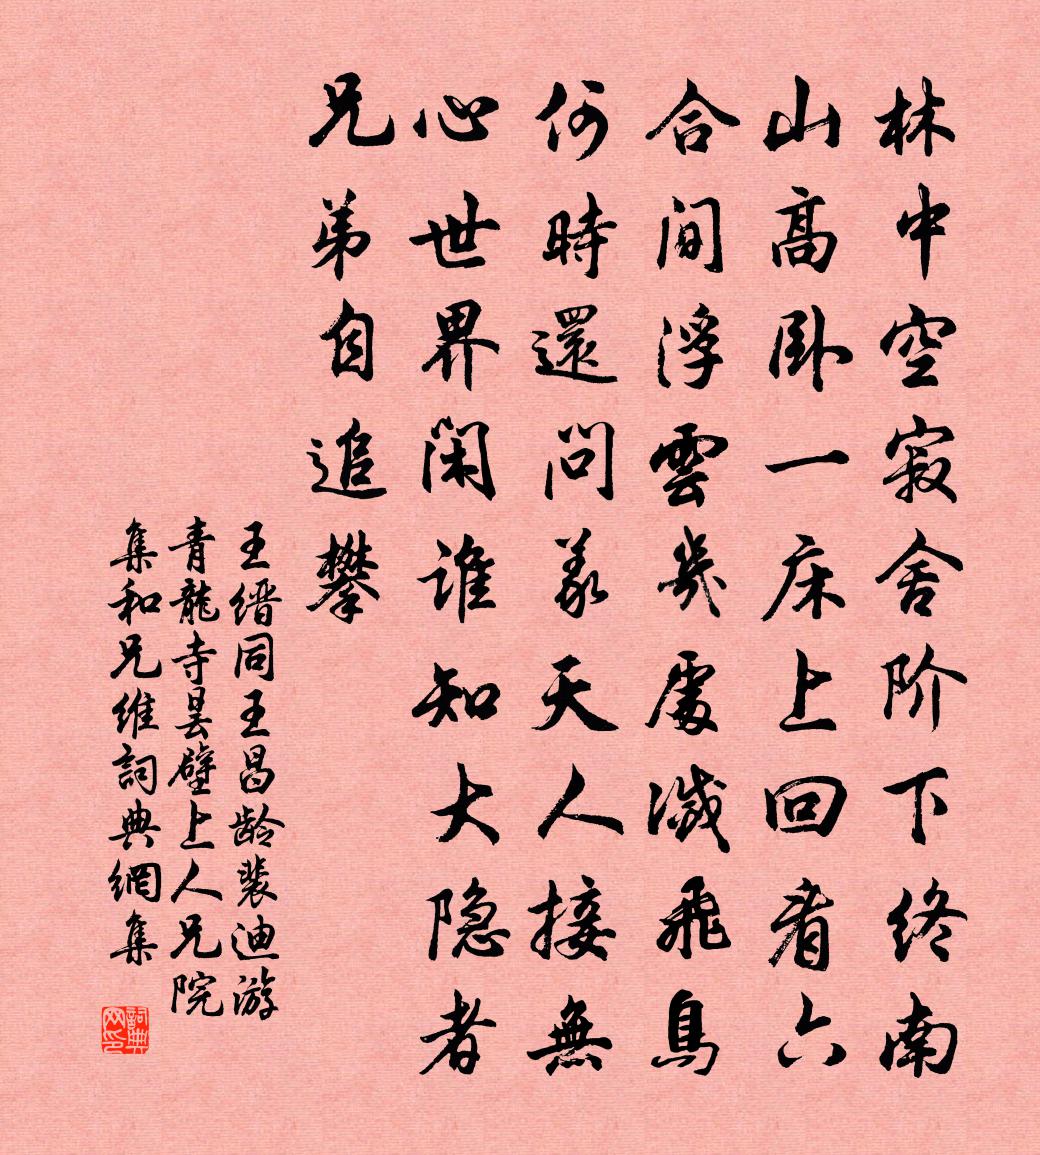 林中空寂舍阶下终南
山高卧一床上回看六
合间浮雲幾處滅飛鳥
何時還問義天人接無
心世界闲谁知大隐者
兄弟自追攀
王缙同王昌龄裴迪游
青龍寺昙壁上人兄院
集和兄维詞典網集
詞典网印